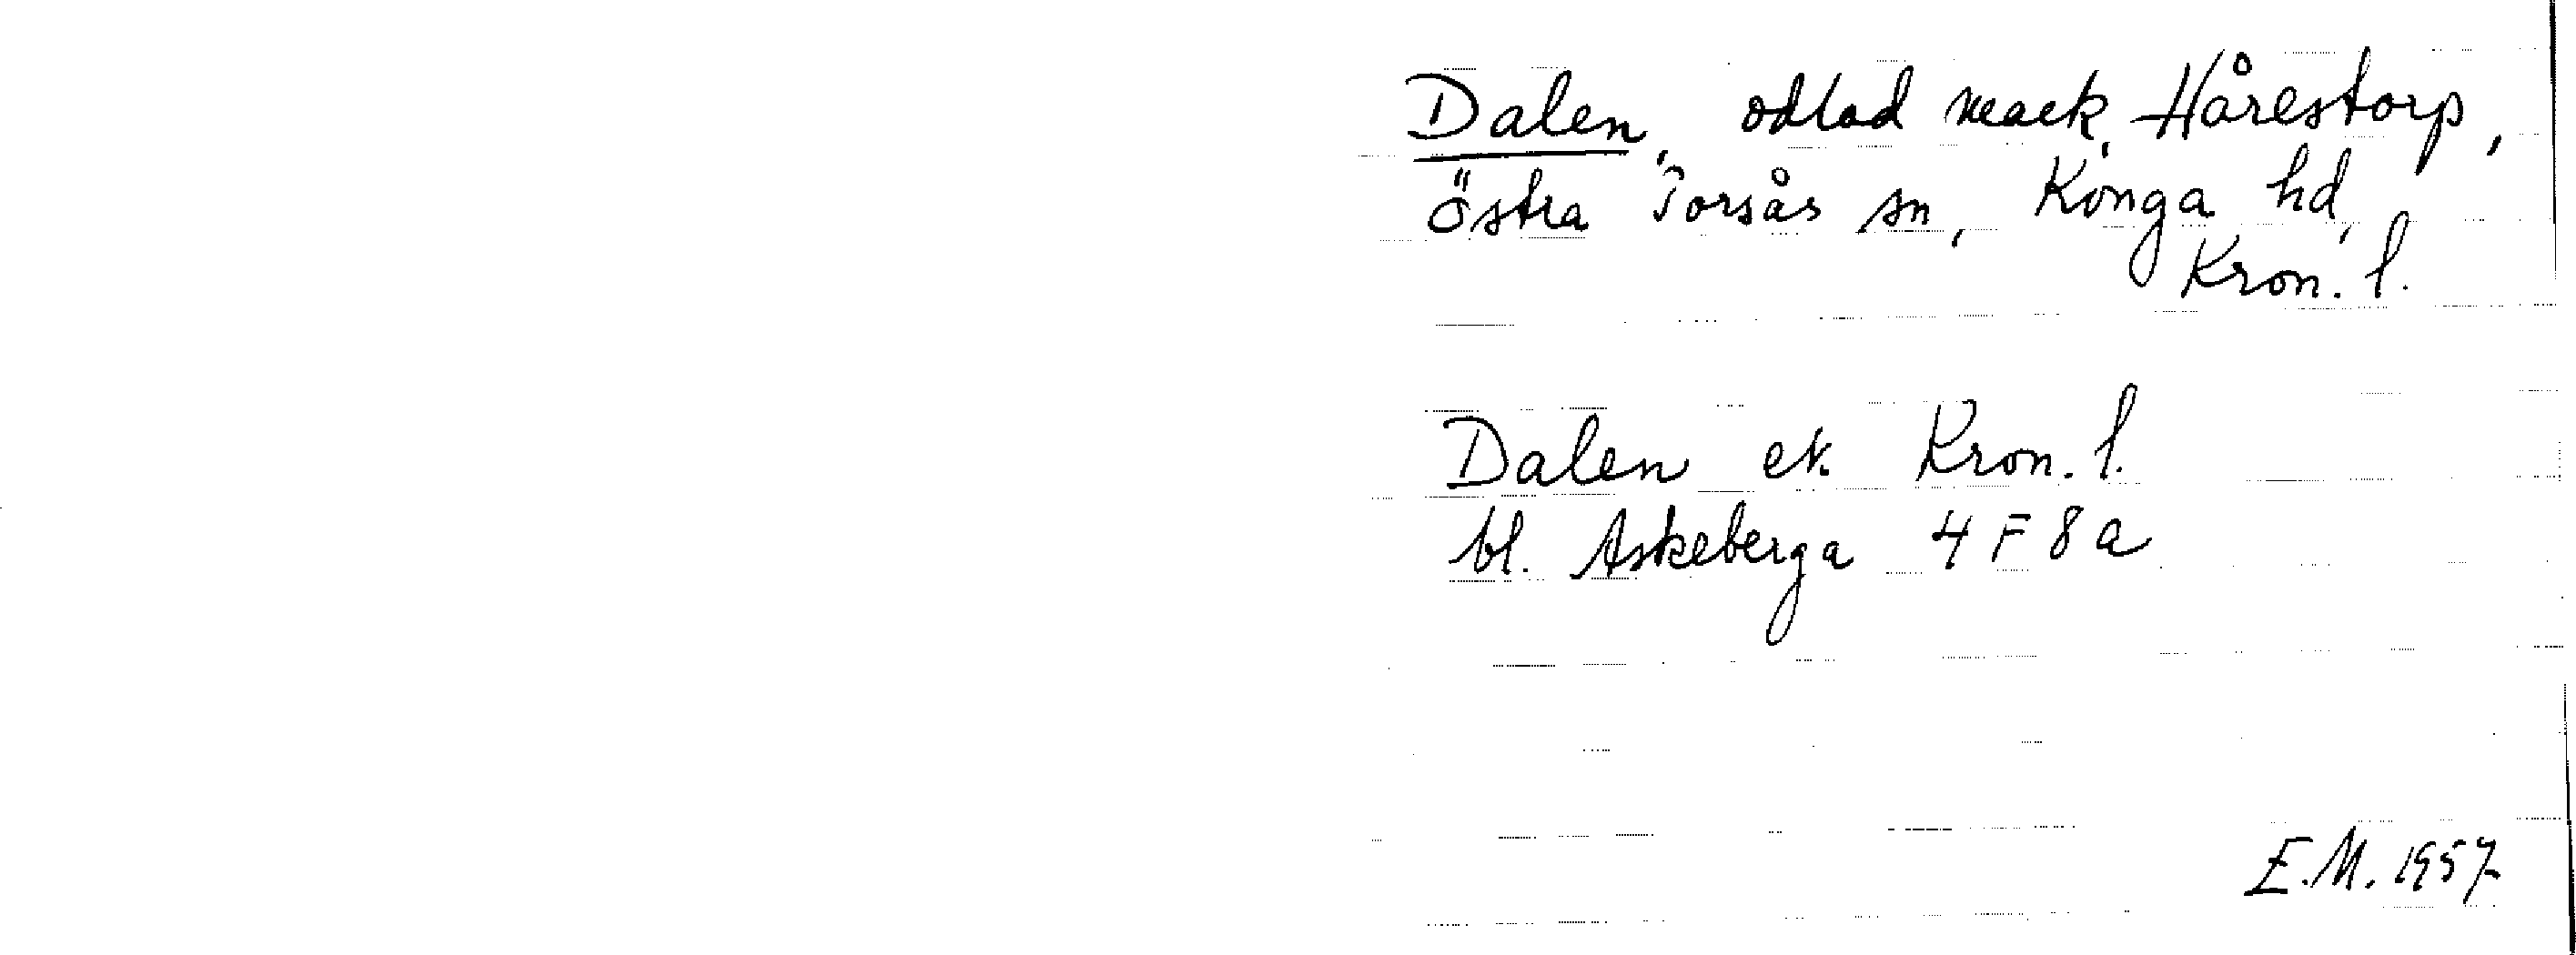 Dalen, odlad mark, Hårestorp,
östra Torsås sn, Konga hd,
Kron. l.
Dalen ek Kron. l.
bl. Askeberga 4 F 8 a
E.M. 1957